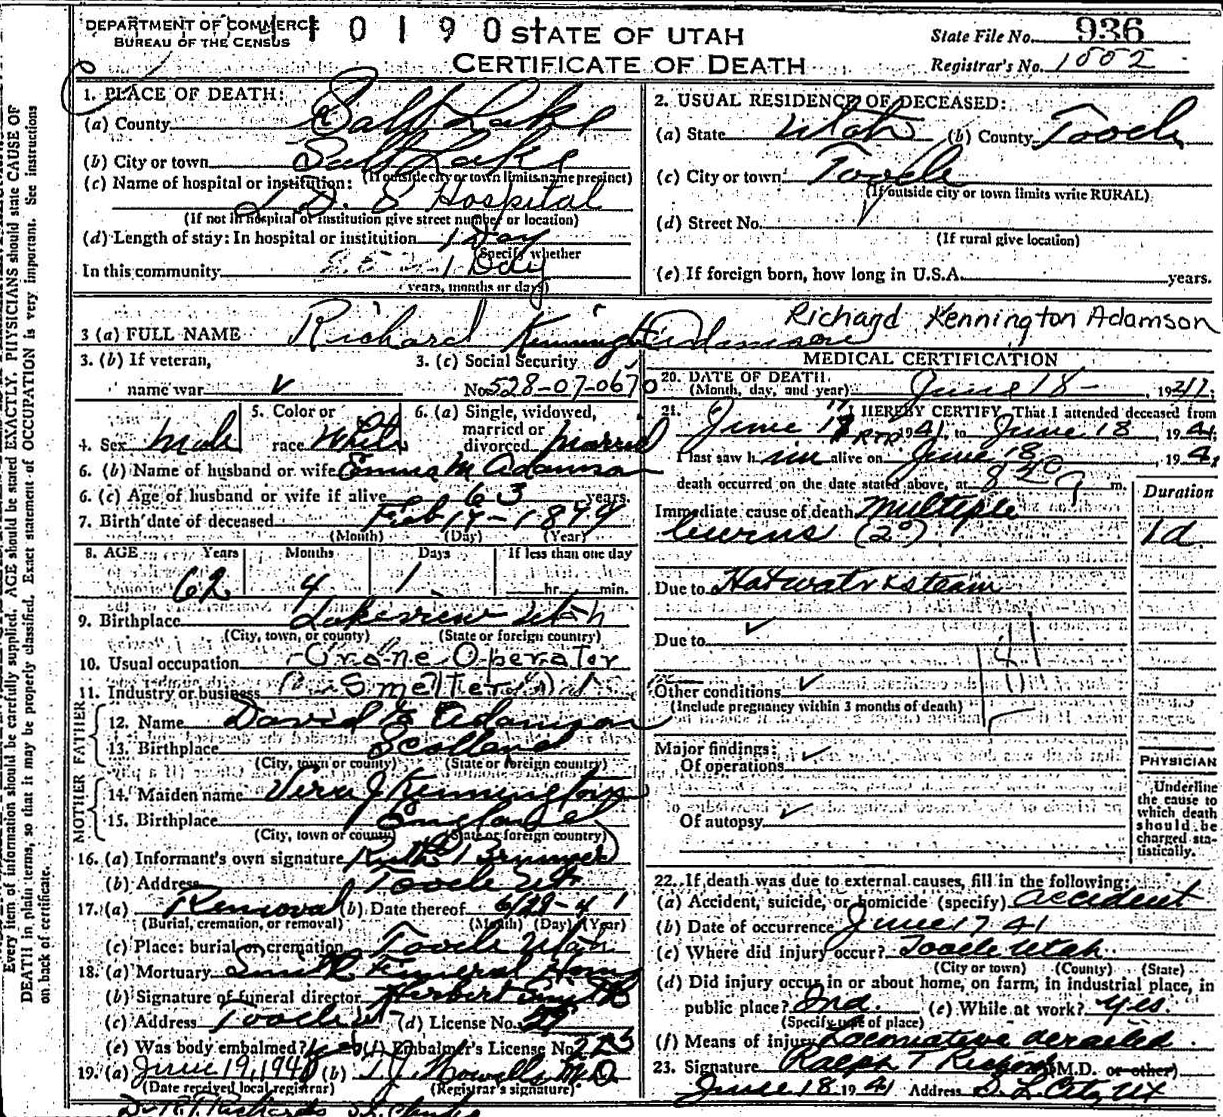 DEPARTMENT OF COMMERCE
BUREAU OF THE CENSUS
110190
STATE OF UTAH
CERTIFICATE OF DEATH
State File No. 936
Registrar's No. 1002
1. PLACE OF DEATH:
(a) County Salt Lake
(b) City or town Salt Lake
(If outside city or town limits name precinct)
(c) Name of hospital or institution:
L. D. S Hospital
(If not in hospital or institution give street number or location)
(d) Length of stay: In hospital or institution 1 Day
(Specify whether
In this community 1 Day
years, months or days)
2. USUAL RESIDENCE OF DECEASED:
(a) State Utah (b) County Tooele
(c) City or town Tooele
(If outside city or town limits write RURAL)
(d) Street No.
(If rural give location)
(e) If foreign born, how long in U.S.A. years.
3 (a) FULL NAME Richard Kennington Adamson
Richard Kennington Adamson
3. (b) If veteran,
name war
3. (c) Social Security
No. 528-07-0670
4. Sex Male
5. Color or
race White
6. (a) Single, widowed,
married or
divorced married
6. (b) Name of husband or wife Emma M Adamson
6. (c) Age of husband or wife if alive 63 years.
7. Birth date of deceased Feb 17-1879
(Month) (Day) (Year)
8. AGE Years Months Days If less than one day
62 4 1 hr. min.
9. Birthplace Lakeview Utah
(City, town, or county) (State or foreign country)
10. Usual occupation Crane Operator
11. Industry or business Smelter
FATHER
12. Name David Adamson
13. Birthplace Scotland
(City, town or county) (State or foreign country)
MOTHER
14. Maiden name J Kennington
15. Birthplace England
(City, town or county) (State or foreign country)
16. (a) Informant's own signature Ruth
(b) Address Tooele Ut
17. (a) Removal (b) Date thereof 41
(Burial, cremation, or removal) (Month) (Day) (Year)
(c) Place: burial or cremation Tooele Utah
18. (a) Mortuary Smith Funeral Home
(b) Signature of funeral director Herbert Smith
(c) Address Tooele Ut (d) License No.
(e) Was body embalmed? yes (f) Embalmer's License No. 223
19. (a) June 19, 194 (b) M.D
(Date received local registrar) (Registrar's signature)
MEDICAL CERTIFICATION
20. DATE OF DEATH
(Month, day, and year) June 18- 1941.
21. I HEREBY CERTIFY, That I attended deceased from
June 17 1941, to June 18, 1941
I last saw him alive on June 18, 1941
death occurred on the date stated above, at 8 m.
Duration
Immediate cause of death Multiple
burns (2°) 1d.
Due to Hot water & steam
Due to
Other conditions
(Include pregnancy within 3 months of death)
Major findings:
Of operations
Of autopsy
PHYSICIAN
Underline
the cause to
which death
should be
charged sta-
tistically.
22. If death was due to external causes, fill in the following:
(a) Accident, suicide, or homicide (specify) Accident
(b) Date of occurrence June 17 41
(c) Where did injury occur? Tooele Utah
(City or town) (County) (State)
(d) Did injury occur in or about home, on farm, in industrial place, in
public place? Ind. (e) While at work? yes.
(Specify type of place)
(f) Means of injury Locomotive derailed
23. Signature Ralph T Richards M.D. or other)
June 18 1941 Address S. L. City, Ut
Every item of information should be carefully supplied. AGE should be stated EXACTLY. PHYSICIANS should state CAUSE OF
DEATH in plain terms, so that it may be properly classified. Exact statement of OCCUPATION is very important. See instructions
on back of certificate.